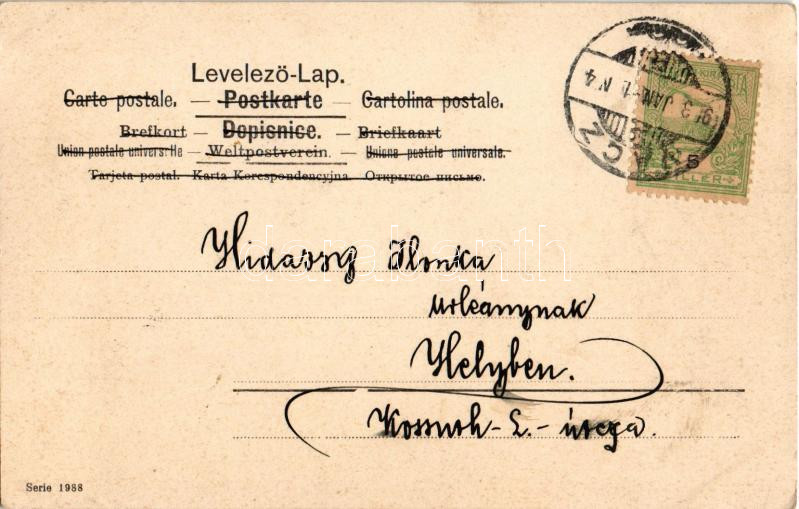 Levelező-Lap.
Carte postale. — Postkarte — Cartolina postale.
Brefkort — Dopisnice. — Briefkaart
Union postale universelle — Weltpostverein. — Unione postale universale.
Tarjeta postal. Karta Korespondencyjna Открытое письмо.
5
Ilonka
Urleánynak
Helyben.
Kossuth-L.-útcza.
Serie 1988
darabanth